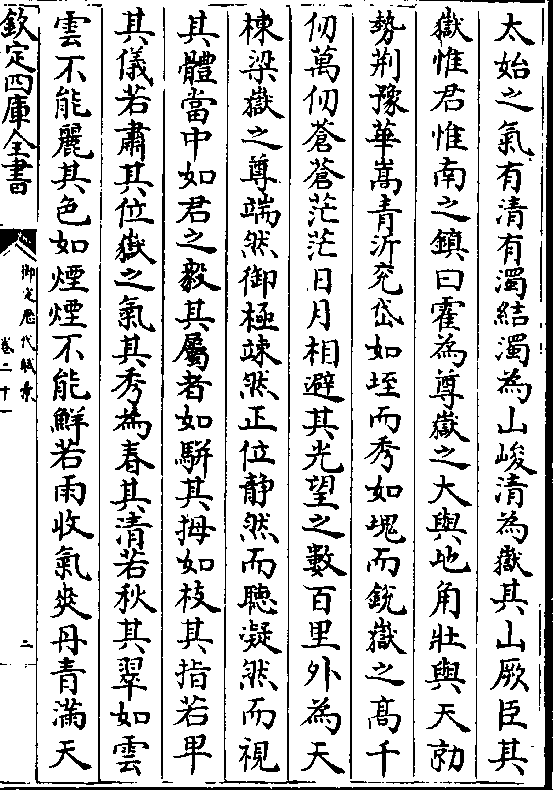 太始之氣有清有濁結濁為山峻清為嶽其山厥臣其
嶽惟君惟南之鎮曰霍為尊嶽之大與地角壯與天勍
勢荆豫華嵩青沂兖岱如垤而秀如塊而銳嶽之髙千
仞萬仞蒼蒼茫茫日月相避其光望之數百里外為天
棟梁嶽之尊端然御極竦然正位靜然而聽凝然而視
其體當中如君之毅其屬者如駢其拇如枝其指若卑
其儀若肅其位嶽之氣其秀為春其清若秋其翠如雲
雲不能麗其色如煙煙不能鮮若雨收氣爽丹青滿天
欽定四庫全書
御定歷代賦彙
卷二十一
二